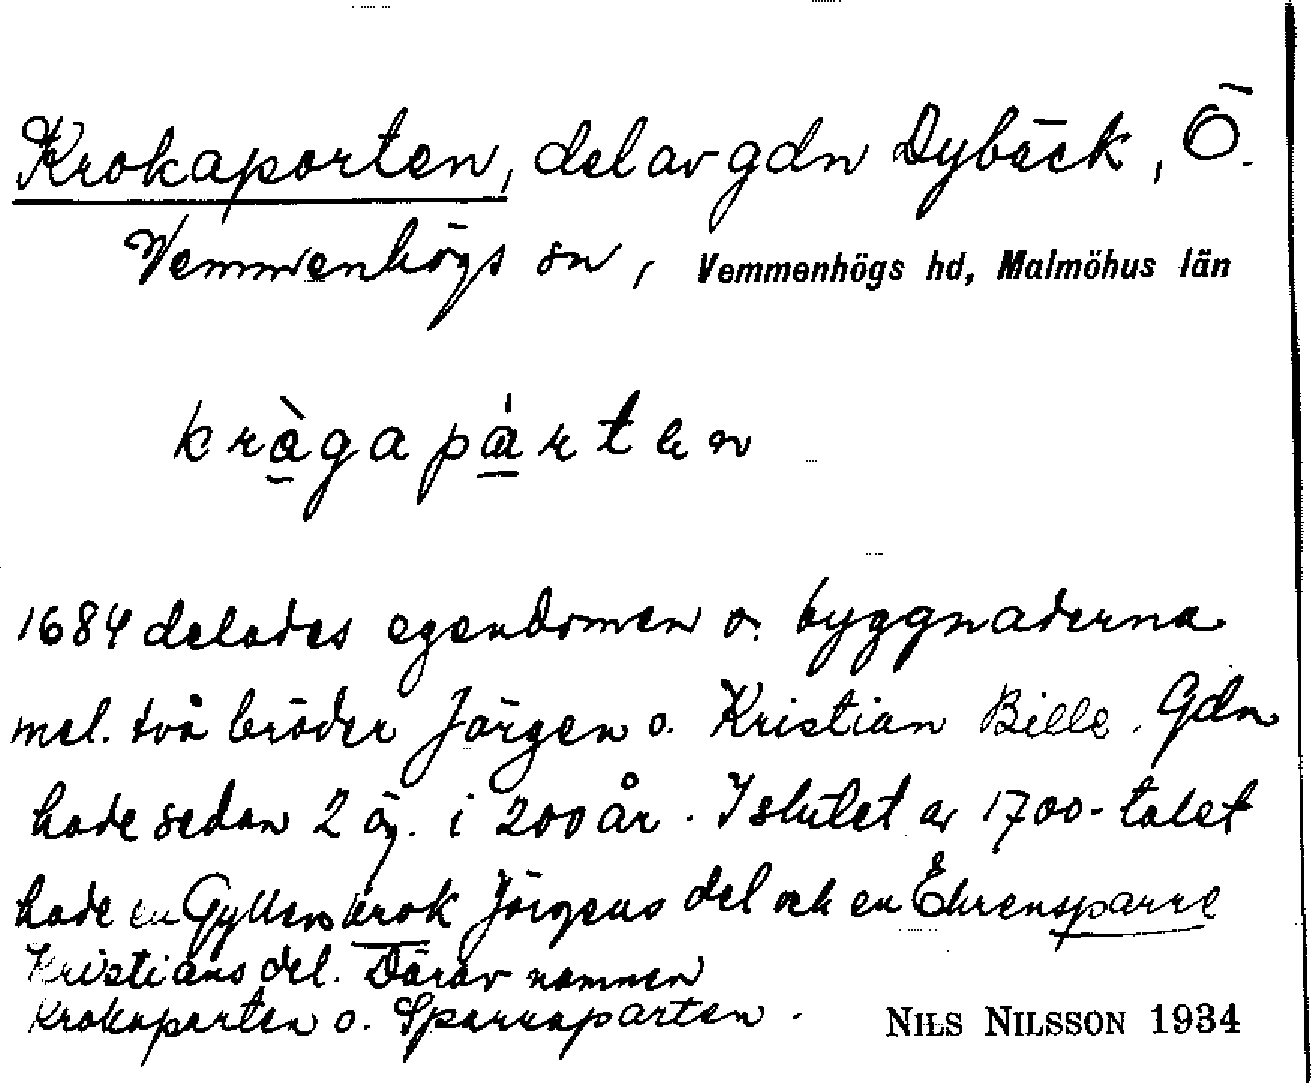 Krokaporten, del av gdn Dybäck, Ö.
Vemmenhögs sn, Vemmenhögs hd, Malmöhus län
kràgapárten
1684 delades egendomen o. byggnaderna
mel. två bröder Jörgen o. Kristian Bille. Gdn
hade sedan 2 äg. i 200 år. I slutet av 1700-talet
hade en Gyllenkrok Jörgens del och en Ehrensparre
Kristians del. Därav namnen
Krokaparten o. Sparraparten.
NILS NILSSON 1934